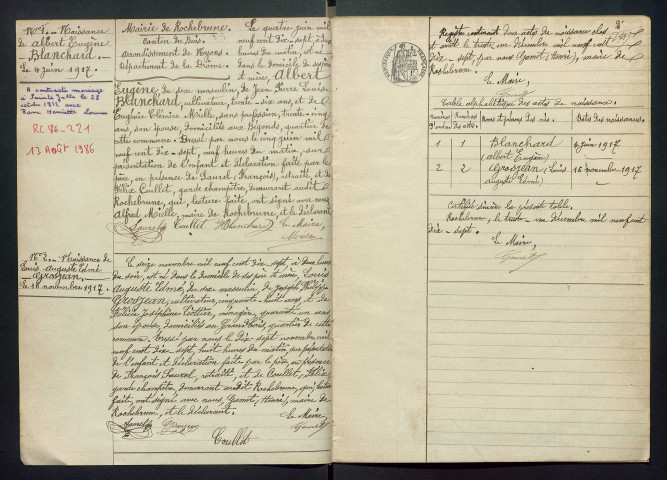 N° 1. - Naissance
de Albert Eugène
Blanchard.
Le 4 juin 1917.
A contracté mariage
à Sainte Jalle le 28
1938 avec
Henriette Louise
RC 86-221
13 AOÛT 1986
Mairie de Rochebrune.
Canton du Buis.
Arrondissement de Nyons.
Département de la Drôme.
Le quatre juin mil
neuf cent dix-sept, à
heures du matin, est né
dans le domicile de ses père
et mère, Albert
Eugène, du sexe masculin, de Jean Pierre Louis
Blanchard, cultivateur, trente-six ans, et de
Eugénie Clémence Mielle, sans profession, trente-cinq
ans, son épouse, domiciliés aux Bégonds, quartier de
cette commune. Dressé par nous le cinq juin mil
neuf cent dix-sept, neuf heures du matin, sur
présentation de l'enfant et déclaration faite par le
père, en présence de Laurel (François), retraité, et de
Félix Coullet, garde champêtre, demeurant audit
Rochebrune, qui, lecture faite, ont signé avec nous,
Alfred Mielle, maire de Rochebrune, et le déclarant.
Laurel Coullet Blanchard Le Maire,
Mielle
N° 2. - Naissance de
Louis Auguste Edmé
Grosjean.
Le 16 novembre 1917.
Le seize novembre mil neuf cent dix-sept, à deux heures
du soir, est né dans le domicile de ses père et mère, Louis
Auguste Edmé, du sexe masculin, de Joseph Philippe
Grosjean, cultivateur, cinquante-huit ans, et de
Félicie Joséphine ménagère, quarante et un ans
son épouse, domiciliés au Grand Bois, quartier de cette
commune. Dressé par nous le dix-sept novembre mil
neuf cent dix-sept, huit heures du matin, sur présentation
de l'enfant et déclaration faite par le père, en présence
de François Laurel, retraité, et de Coullet, Félix,
garde champêtre, demeurant audit Rochebrune, qui, lecture
faite, ont signé avec nous, Gamet, Henri, maire de
Rochebrune, et le déclarant.
Le Maire,
Laurel Grosjean Gamet
Coullet
Registre contenant deux actes de naissance clos
et arrêté le trente un décembre mil neuf cent
dix-sept, par nous Gamet (Henri), maire de
Rochebrune.
Le Maire,
Gamet
Table alphabétique des actes de naissance.
Numéros d'ordre. Numéros des actes. Noms et prénoms des nés. Dates des naissances.
1 1 Blanchard 4 juin 1917
(Albert Eugène)
2 2 Grosjean (Louis 16 novembre 1917
Auguste Edmé)
Certifiée sincère la présente table,
Rochebrune, le trente-un décembre mil neuf cent
dix-sept.
Le Maire,
Gamet